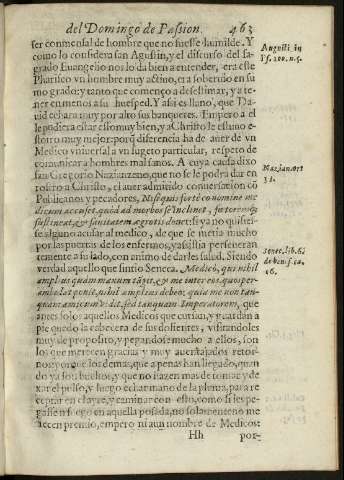 del Domingo de Passion. 463
ser conmensal de hombre que no fuesse humilde. Y
como lo considera san Agustin, y el discurso del sa-
grado Euangelio nos lo da bien a entender, era este
Phariseo vn hombre muy altiuo, era soberuio en su
mo grado: y tanto que començo a desestimar, y a te-
ner en menos a su huesped. Y assi es llano, que Da-
uid echara muy por alto sus banquetes. Empero a el
le pudiera estar esso muy bien, y a Christo le estuuo es-
totro muy mejor: porque diferencia ha de auer de vn
Medico vniuersal a vn sugeto particular, respeto de
comunicar a hombres mal sanos. A cuya causa dixo
san Gregorio Nazianzeno, que no se le podra dar en
rostro a Christo, el auer admitido conuersacion con
Publicanos y pecadores, Nisi quis forte eo nomine me
dicum accuset, quod ad morbos se inclinet, foetorem
sustineat, & sanitatem aegrotis donet: si ya no quisies-
se alguno acusar al medico, de que se metia mucho
por las puertas de los enfermos, y assistia perseueran
temente a su lado, con animo de darles salud. Siendo
verdad aquello que sintio Seneca. Medico, qui nihil
amplius quam manum tangit, & me inter eos quos per-
ambulat ponit, nihil amplius debeo, quia me non tan-
quam amicum vidit, sed tanquam Imperatorem, que
antes solos aquellos Medicos que curian, y guardan a
pie quedo la cabecera de sus dolientes, visitandoles
muy de proposito, y pegandose mucho a ellos, son
los que merecen gracias y muy auentajados retor-
nos: porque los demas, que apenas han llegado, quan
do ya son bueltos, y que no hazen mas de tomar y de
xar el pulso, y luego echar mano de la pluma, para re
ceptar en cleyre, y caminar con esto, como si les pe-
gasse en fuego en aquella posada, no solamente no me
recen premio, empero ni aun nombre de Medicos:
Hh por-
August. in
Ps. 100. n. 5.
Nazian. ort
31.
Senec. lib. 6.
de benef. ca.
16.